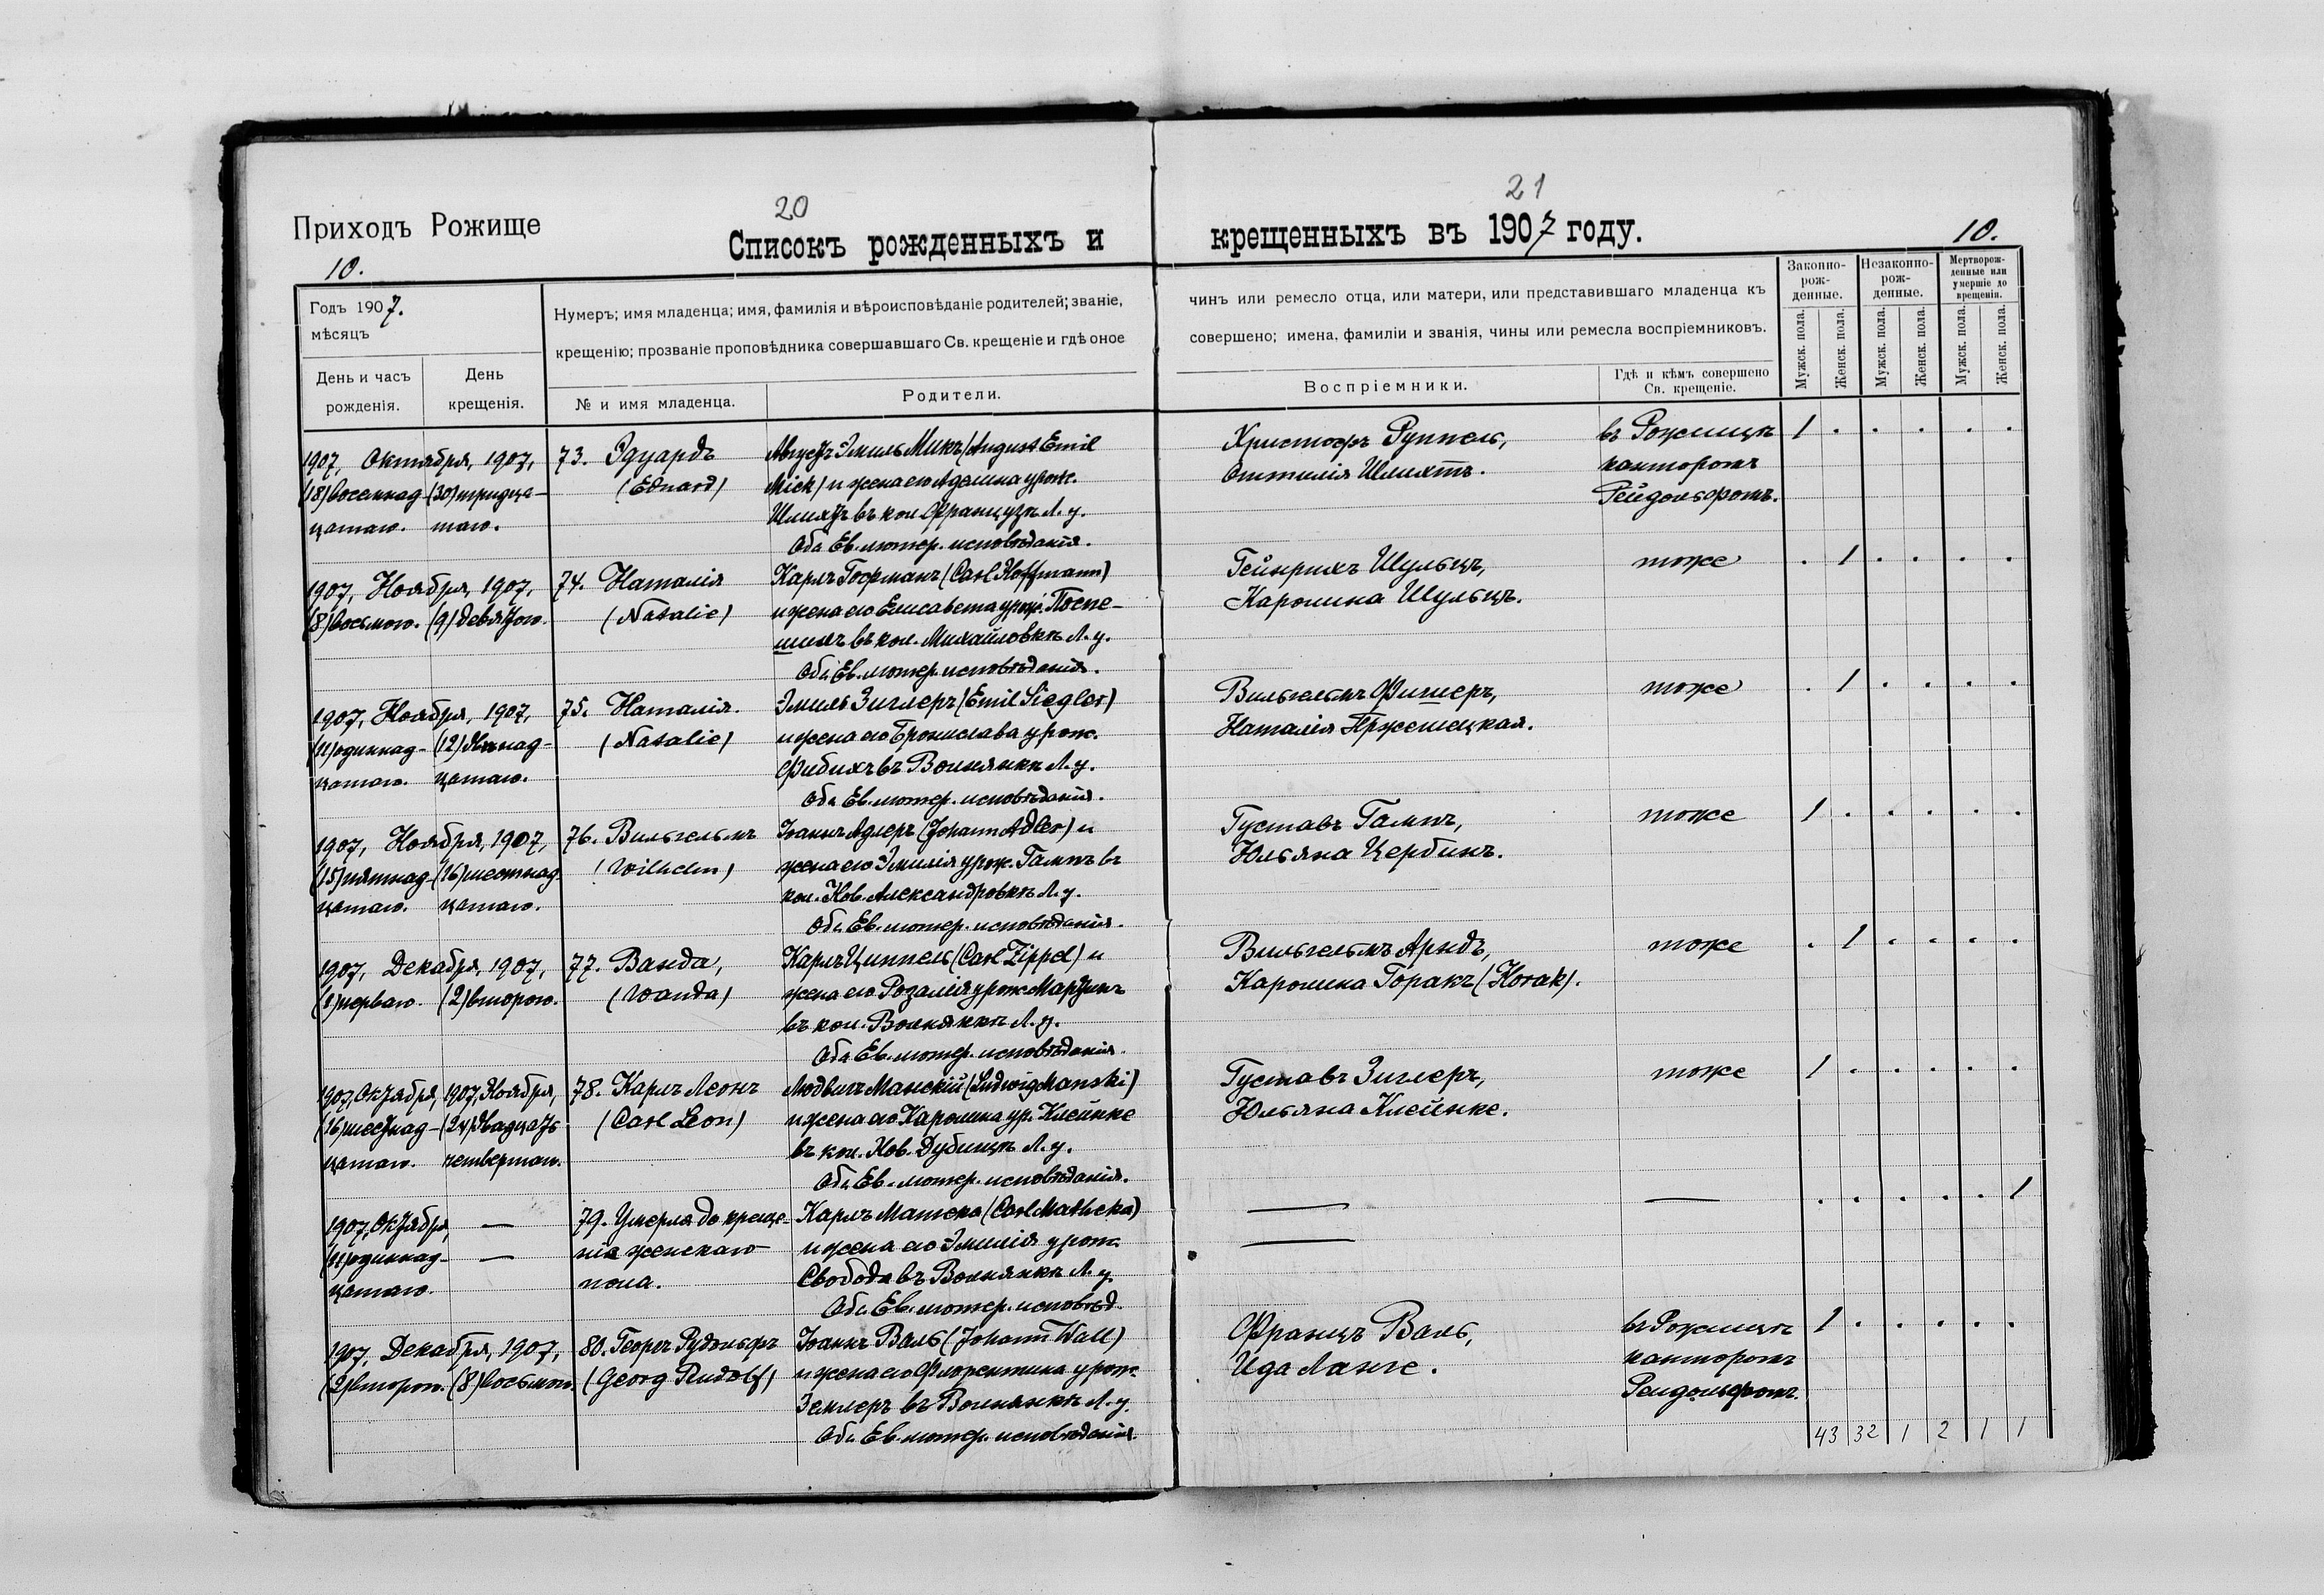 20
21
Приходъ Рожище
Списокъ рожденныхъ и
крещенныхъ въ 1907 году.
10.
10.
Годъ 1907.
мѣсяцъ
День и часъ рожденія.
День крещенія.
Нумеръ; имя младенца; имя, фамилія и вѣроисповѣданіе родителей; званіе,
крещенію; прозваніе проповѣдника совершавшаго Св. крещеніе и гдѣ оное
№ и имя младенца.
Родители.
чинъ или ремесло отца, или матери, или представившаго младенца къ
совершено; имена, фамиліи и званія, чины или ремесла воспріемниковъ.
Воспріемники.
Гдѣ и кѣмъ совершено
Св. крещеніе.
Законно-
рож-
денные.
Незаконно-
рож-
денные.
Мертворож-
денные или
умершіе до
крещенія.
Мужск. пола.
Женск. пола.
Мужск. пола.
Женск. пола.
Мужск. пола.
Женск. пола.
1907, Октября, 1907,
(18) восемнад- (30) тридца-
цатаго. таго.
73. Эдуардъ
(Eduard)
Августъ Эмиль Микъ (August Emil
Mick) и жена его Аделина урож.
Шлихтъ въ кол. Французкѣ Л. у.
Оба Ев. лютер. исповѣданія.
Христофъ Руппель,
Оттилія Шлихтъ.
въ Рожищѣ
канторомъ
Рейдольфомъ.
1 . . . . .
1907, Ноября, 1907,
(8) восьмого. (9) девятого.
74. Наталія
(Natalie)
Карлъ Гофманъ (Carl Hoffmann)
и жена его Елисавета урож. Поспе-
шилъ въ кол. Михайловкѣ Л. у.
Оба Ев. лютер. исповѣданія.
Гейнрихъ Шульцъ,
Каролина Шульцъ.
тоже
. 1 . . . .
1907, Ноября, 1907,
(11) одиннад- (12) двѣнад-
цатаго. цатаго.
75. Наталія.
(Natalie)
Эмиль Зиглеръ (Emil Siegler)
и жена его Брониславa урож.
Фибихъ въ Волнянкѣ Л. у.
Оба Ев. лютер. исповѣданія.
Вильгельмъ Фишеръ,
Наталія Пржешецкая.
тоже
. 1 . . . .
1907, Ноября, 1907,
(15) пятнад- (16) шестнад
цатаго. цатаго.
76. Вильгельмъ
(Wilhelm)
Іоаннъ Адлеръ (Johann Adler) и
жена его Эмилія урож. Гампъ въ
кол. Нов. Александровкѣ Л. у.
Оба Ев. лютер. исповѣданія.
Густавъ Гампъ,
Юльяна Цербинъ.
тоже
1 . . . . .
1907, Декабря, 1907,
(1) перваго. (2) второго.
77. Ванда,
(Wanda)
Карлъ Циппель (Carl Zippel) и
жена его Розалія урож. Мартинъ
въ кол. Волнянкѣ Л. у.
Оба Ев. лютер. исповѣданія.
Вильгельмъ Арндъ,
Каролина Горакъ (Horak).
тоже
. 1 . . . .
1907, Октября, 1907, Ноября,
(16) шестнад- (24) двадцать
цатаго. четвертаго.
78. Карлъ Леонъ
(Carl Leon)
Людвигъ Манскій (Ludwig Manski)
и жена его Каролина ур. Клейнке
въ кол. Нов. Дубищѣ Л. у.
Оба Ев. лютер. исповѣданія.
Густавъ Зиглеръ,
Юльяна Клейнке.
тоже
1 . . . . .
1907, Октября, —
(11) одиннад- —
цатаго.
79. Умерла до креще-
нія женскаго
пола.
Карлъ Матека (Carl Matheka)
и жена его Эмилія урож.
Свобода въ Волнянкѣ Л. у.
Оба Ев. лютер. исповѣд.
—
—
—
. . . . . 1
1907, Декабря, 1907,
(2) второго. (8) восьмого.
80. Георгъ Рудольфъ
(Georg Rudolf)
Іоаннъ Валь (Johann Wall)
и жена его Флорентина урож.
Землеръ въ Волнянкѣ Л. у.
Оба Ев. лютер. исповѣданія.
Францъ Валь,
Ида Ланге.
въ Рожищѣ
канторомъ
Рейдольфомъ.
1 . . . . .
43 32 1 2 1 1